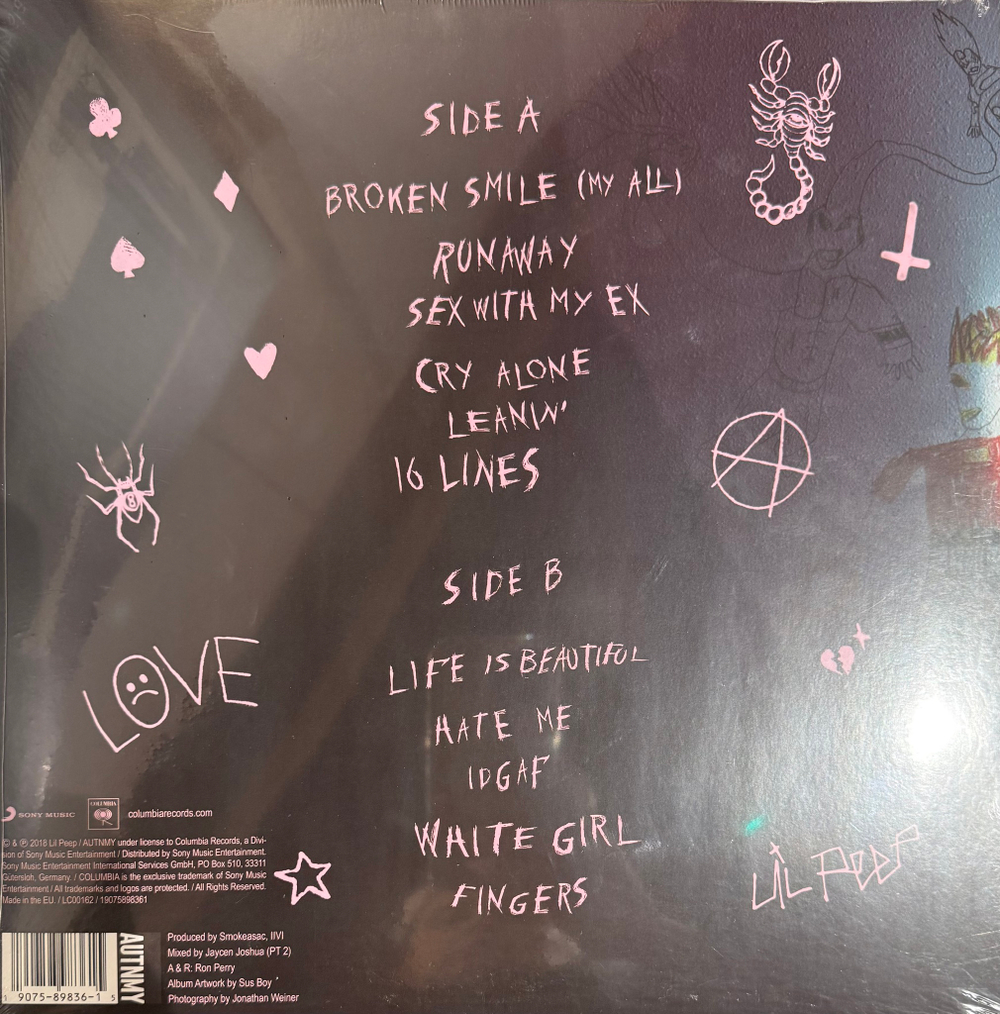 SIDE A
BROKEN SMILE (MY ALL)
RUNAWAY
SEX WITH MY EX
CRY ALONE
LEANIN'
16 LINES
8
SIDE B
LIFE IS BEAUTIFUL
HATE ME
IDGAF
WHITE GIRL
FINGERS
LOVE
LIL PEEP
SONY MUSIC
COLUMBIA
columbiarecords.com
© & ℗ 2018 Lil Peep / AUTNMY under license to Columbia Records, a Divi-
sion of Sony Music Entertainment / Distributed by Sony Music Entertainment.
Sony Music Entertainment International Services GmbH, PO Box 510, 33311
Gütersloh, Germany. / COLUMBIA is the exclusive trademark of Sony Music
Entertainment / All trademarks and logos are protected. / All Rights Reserved.
Made in the EU. / LC00162 / 19075898361
1 9075-89836-1 5
AUTNMY
Produced by Smokeasac, IIVI
Mixed by Jaycen Joshua (PT 2)
A & R: Ron Perry
Album Artwork by Sus Boy
Photography by Jonathan Weiner